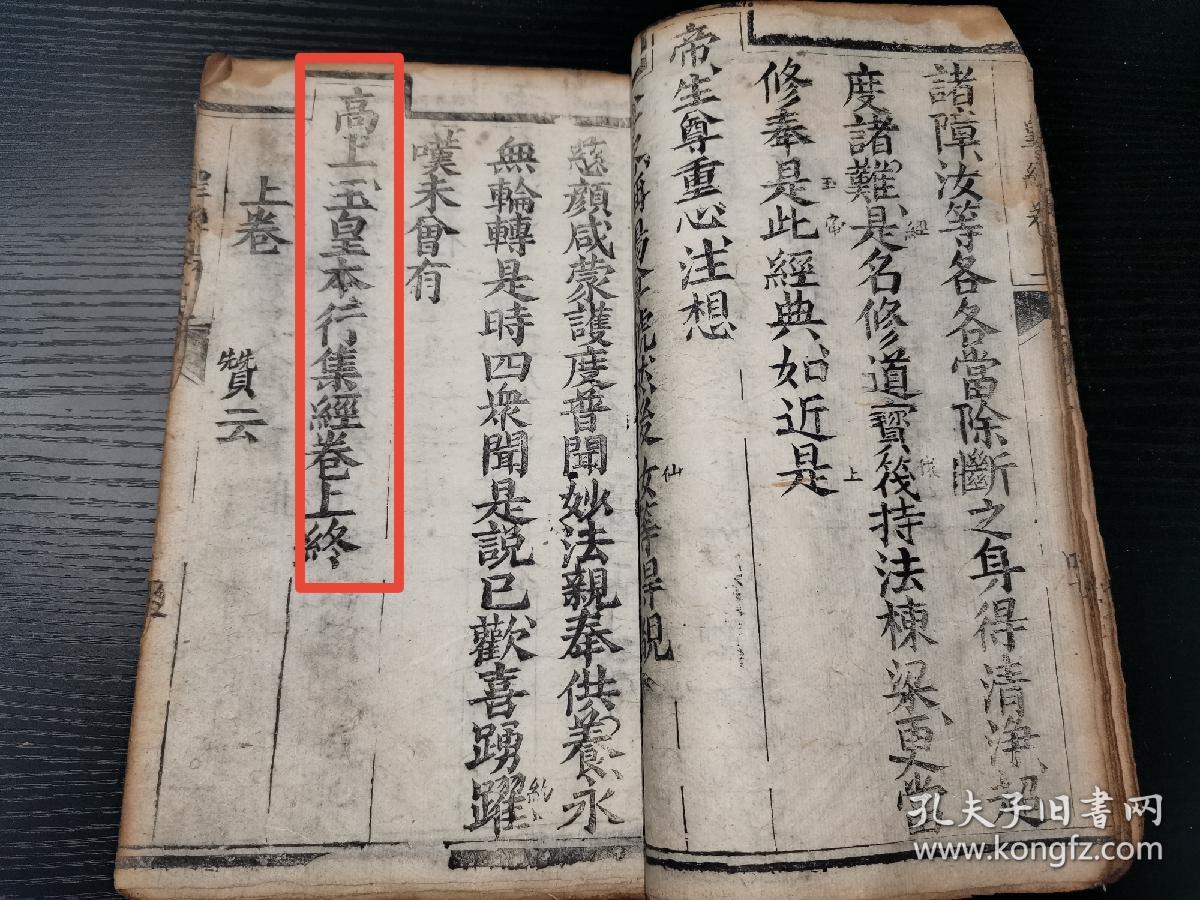 諸障汝等各各當除斷之身得清淨
度諸難是名修道寶筏持法棟梁更當
修奉是此經典如近是
帝生尊重心注想
慈顔咸蒙護度普聞妙法親奉供養永
無輪轉是時四衆聞是說已歡喜踴躍
嘆未曾有
高上玉皇本行集經卷上終
上卷
贊云
孔夫子旧书网
www.kongfz.com